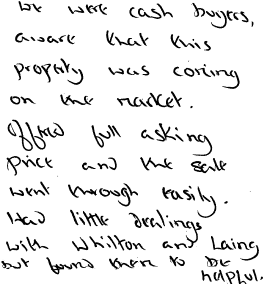 we were cash buyers,
aware that this
property was coming
on the market.
Offered full asking
price and the sale
went through easily.
Had little dealings
with Whilton and Laing
but found them to be
helpful.